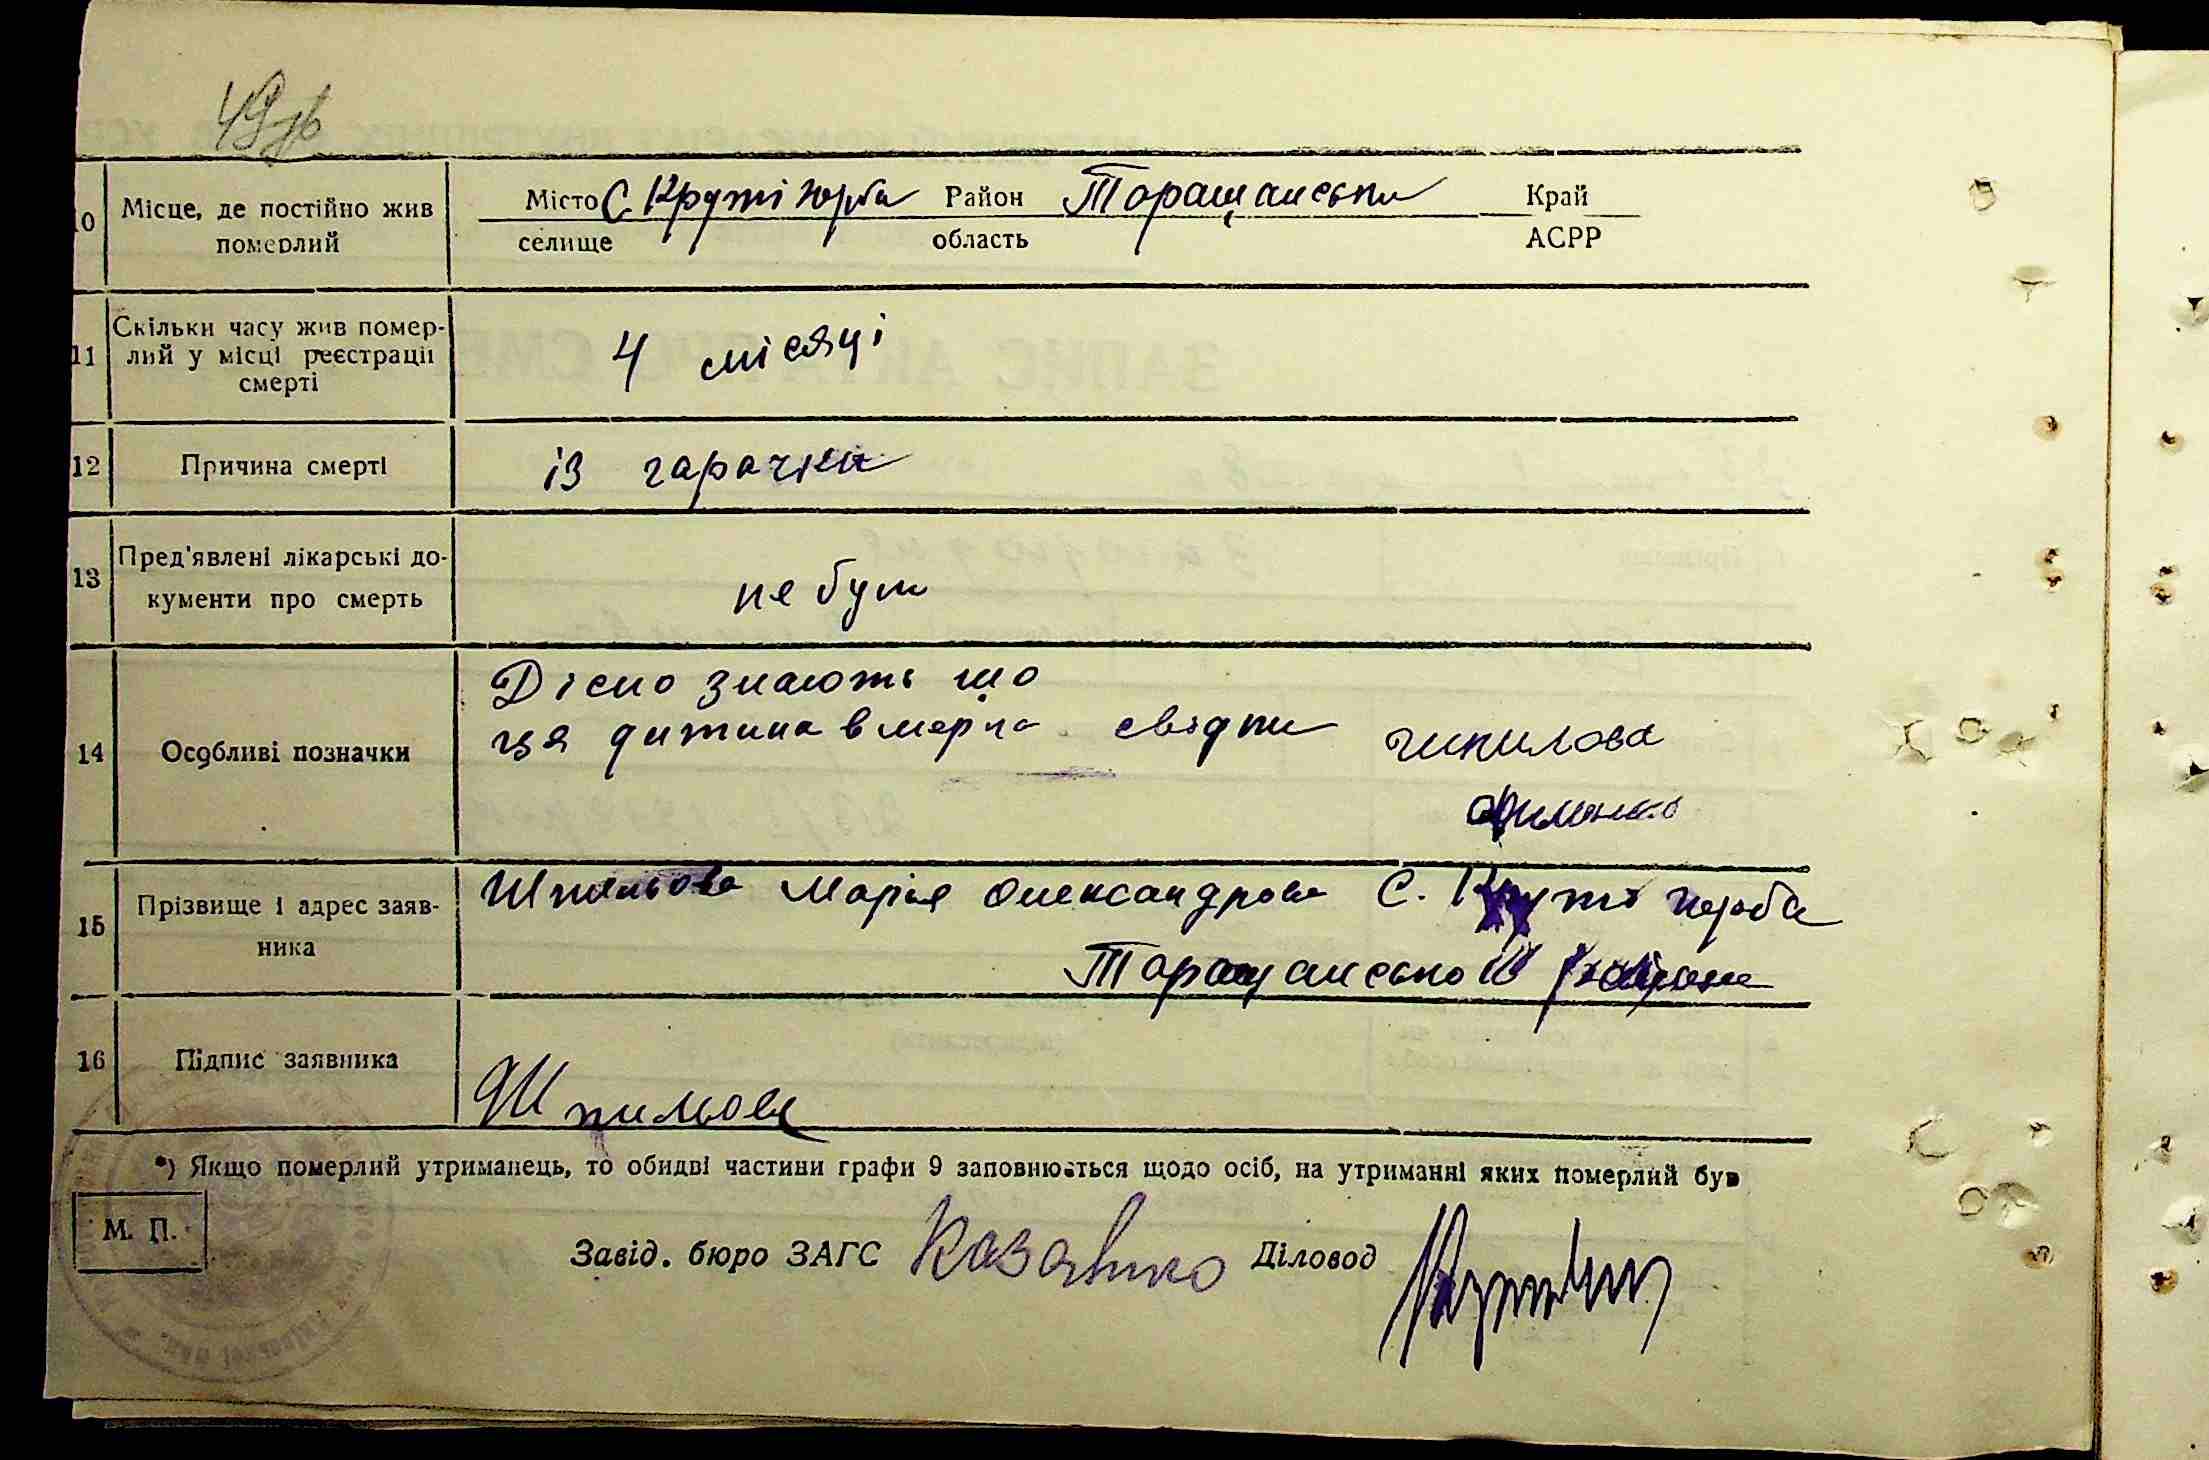 49зв
10 Місце, де постійно жив померлий
Місто С. Круті Юрба Район Таращанськи Край
селище область АСРР
11 Скільки часу жив помер-
лий у місці реєстрації
смерті
4 місяці
12 Причина смерті
із гарачки
13 Пред'явлені лікарські до-
кументи про смерть
не були
14 Особливі позначки
Дісно знають що
ця дитина вмерла свідки
15 Прізвище і адрес заяв-
ника
Шпильова Марія Олександрова С. Круті
Таращанського району
16 Підпис заявника
Шпильова
*) Якщо померлий утриманець, то обидві частини графи 9 заповнюється щодо осіб, на утриманні яких померлий був
М. П.
Завід. бюро ЗАГС Діловод